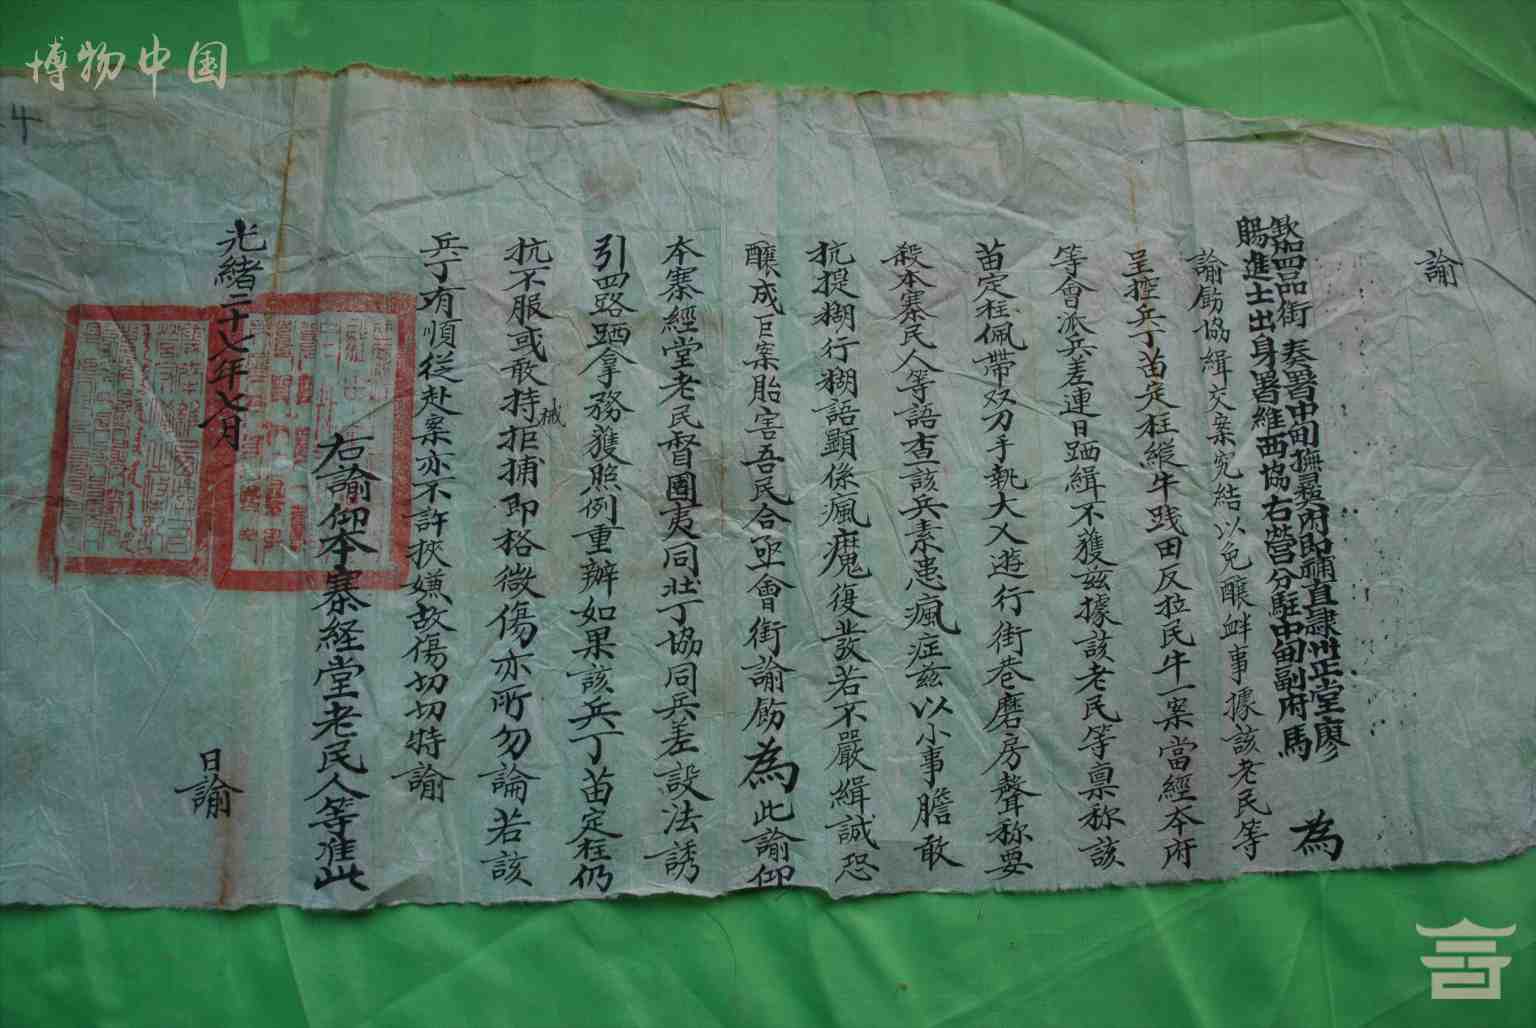 博物中国
4
諭
欽加四品銜 奏署中甸撫彝府即補直隸州正堂廖
賜進士出身署維西協右營分駐中甸副府馬 為
諭飭協緝交案究結以免釀衅事據該老民等
呈控兵丁苗定柱縱牛踐田反拉民牛一案當經本府
等會派兵差連日跴緝不獲茲據該老民等禀称該
苗定柱佩帶双刀手執大乂遊行街巷磨房聲称要
殺本寨民人等語查該兵素患瘋症茲以小事膽敢
抗提糊行糊語顯係瘋魔復發若不嚴緝誠恐
釀成巨案胎害吾民合亟會銜諭飭為此諭仰
本寨經堂老民督團夷同壯丁協同兵差設法誘
引四路跴拿務獲照例重辦如果該兵丁苗定柱仍
抗不服或敢持械拒捕即格微傷亦所勿論若該
兵丁有順從赴案亦不許挾嫌故傷切切特諭
右諭仰本寨経堂老民人等准此
光緒二十七年七月
日諭